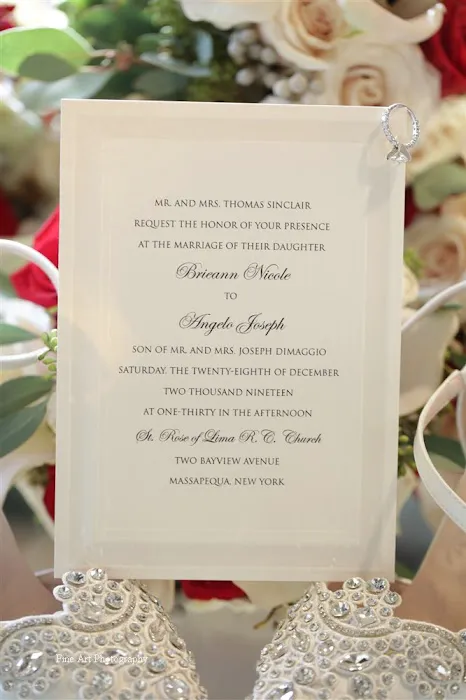 MR. AND MRS. THOMAS SINCLAIR
REQUEST THE HONOR OF YOUR PRESENCE
AT THE MARRIAGE OF THEIR DAUGHTER
Brieann Nicole
TO
Angelo Joseph
SON OF MR. AND MRS. JOSEPH DIMAGGIO
SATURDAY, THE TWENTY-EIGHTH OF DECEMBER
TWO THOUSAND NINETEEN
AT ONE-THIRTY IN THE AFTERNOON
St. Rose of Lima R. C. Church
TWO BAYVIEW AVENUE
MASSAPEQUA, NEW YORK
Fine Art Photography